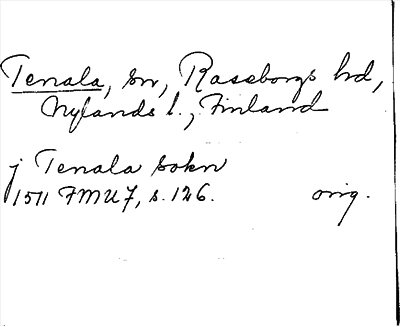 Tenala, sn, Raseborgs hd,
Nylands l., Finland
j Tenala sokn
1511 FMU 7, s. 126. orig.